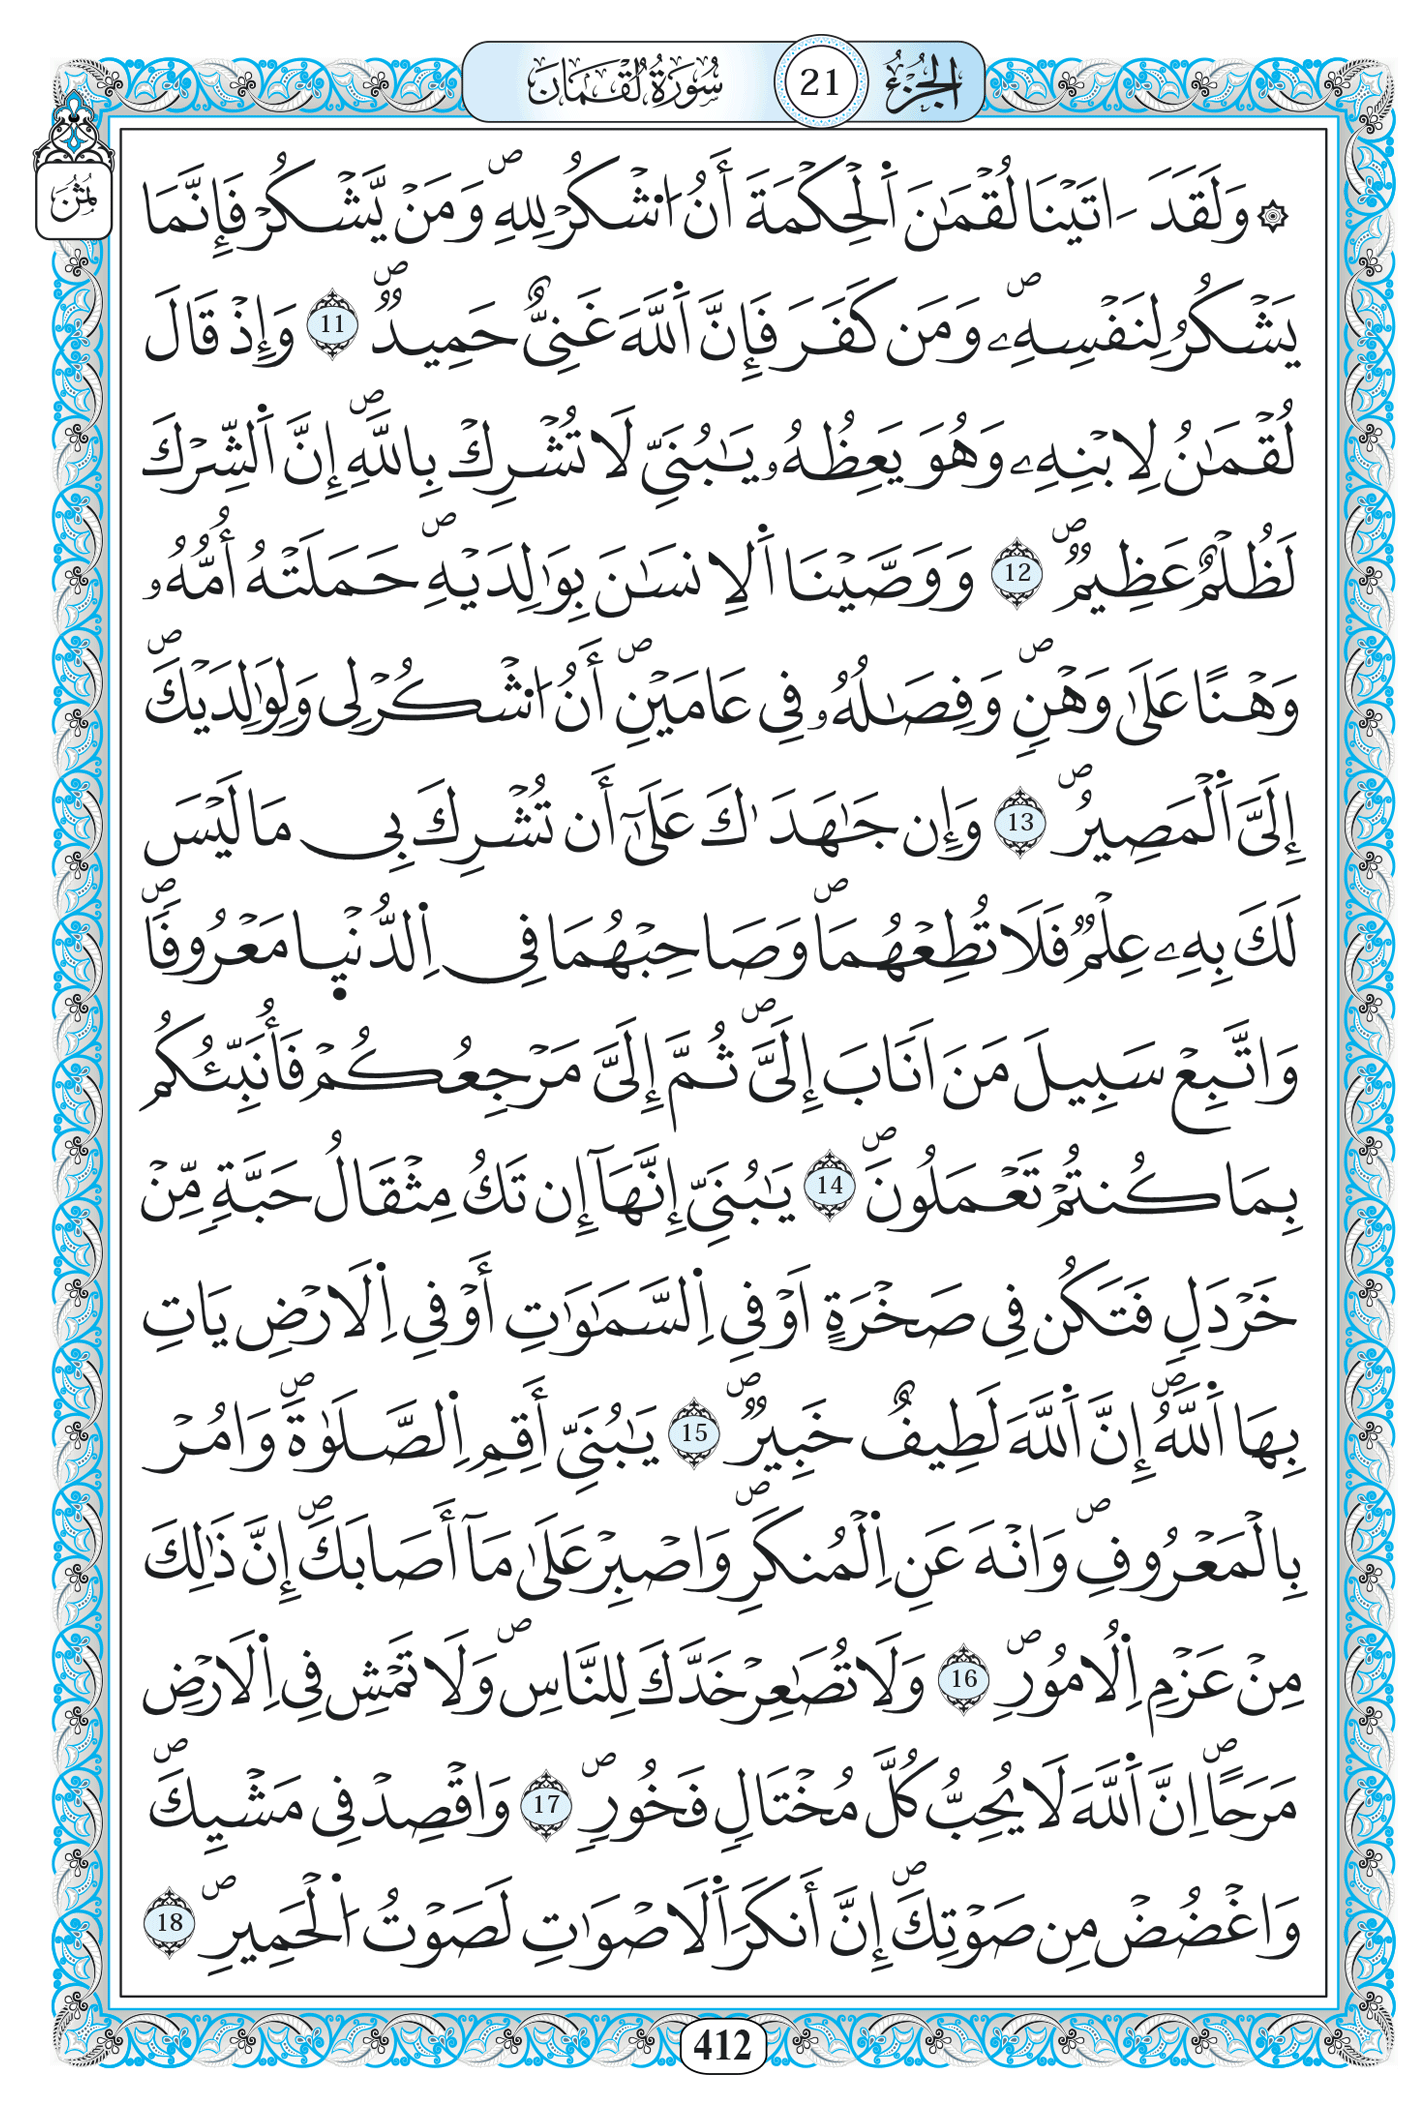 الجزء 21 سورة لقمان
ثمن
۞ وَلَقَدَ ـ اتَيْنَا لُقْمَٰنَ اَ۬لْحِكْمَةَ أَنُ اُ۟شْكُرْ لِلهِۖ وَمَنْ يَّشْكُرْ فَإِنَّمَا
يَشْكُرُ لِنَفْسِهِۦۖ وَمَن كَفَرَ فَإِنَّ اَ۬للَّهَ غَنِيٌّ حَمِيدٞۖ 11 وَإِذْ قَالَ
لُقْمَٰنُ لِابْنِهِۦ وَهُوَ يَعِظُهُۥ يَٰبُنَيِّ لَا تُشْرِكْ بِاللَّهِۖ إِنَّ اَ۬لشِّرْكَ
لَظُلْمٌ عَظِيمٞۖ 12 وَوَصَّيْنَا اَ۬لِانسَٰنَ بِوَٰلِدَيْهِۖ حَمَلَتْهُ أُمُّهُۥ
وَهْنًا عَلَىٰ وَهْنٖۖ وَفِصَٰلُهُۥ فِي عَامَيْنِۖ أَنُ اُ۟شْكُرْ لِي وَلِوَٰلِدَيْكَۖ
إِلَيَّ اَ۬لْمَصِيرُۖ 13 وَإِن جَٰهَدَٰكَ عَلَىٰٓ أَن تُشْرِكَ بِي مَا لَيْسَ
لَكَ بِهِۦ عِلْمٞ فَلَا تُطِعْهُمَاۖ وَصَاحِبْهُمَا فِي اِ۬لدُّنْي۪ا مَعْرُوفاٗۖ
وَاتَّبِعْ سَبِيلَ مَنَ اَنَابَ إِلَيَّۖ ثُمَّ إِلَيَّ مَرْجِعُكُمْ فَأُنَبِّئُكُم
بِمَا كُنتُمْ تَعْمَلُونَۖ 14 يَٰبُنَيِّ إِنَّهَآ إِن تَكُ مِثْقَالُ حَبَّةٖ مِّنْ
خَرْدَلٖ فَتَكُن فِي صَخْرَةٍ اَوْ فِي اِ۬لسَّمَٰوَٰتِ أَوْ فِي اِ۬لَارْضِ يَاتِ
بِهَا اَ۬للَّهُۖ إِنَّ اَ۬للَّهَ لَطِيفٌ خَبِيرٞۖ 15 يَٰبُنَيِّ أَقِمِ اِ۬لصَّلَوٰةَۖ وَامُرْ
بِالْمَعْرُوفِۖ وَانْهَ عَنِ اِ۬لْمُنكَرِۖ وَاصْبِرْ عَلَىٰ مَآ أَصَابَكَۖ إِنَّ ذَٰلِكَ
مِنْ عَزْمِ اِ۬لُامُورِۖ 16 وَلَا تُصَٰعِرْ خَدَّكَ لِلنَّاسِۖ وَلَا تَمْشِ فِي اِ۬لَارْضِ
مَرَحاًۖ اِنَّ اَ۬للَّهَ لَا يُحِبُّ كُلَّ مُخْتَالٖ فَخُورٖۖ 17 وَاقْصِدْ فِي مَشْيِكَۖ
وَاغْضُضْ مِن صَوْتِكَۖ إِنَّ أَنكَرَ اَ۬لَاصْوَٰتِ لَصَوْتُ اُ۬لْحَمِيرِۖ 18
412